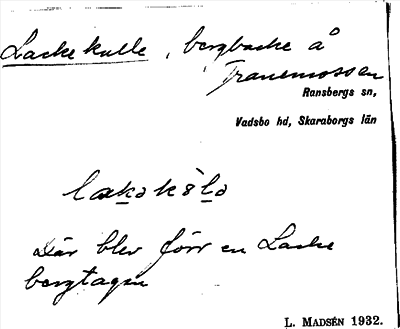 Laskekulle, bergbacke å
Tranemossen
Ransbergs sn,
Vadsbo hd, Skaraborgs län
Där blev förr en Laske
bergtagen
L. MADSÉN 1932.